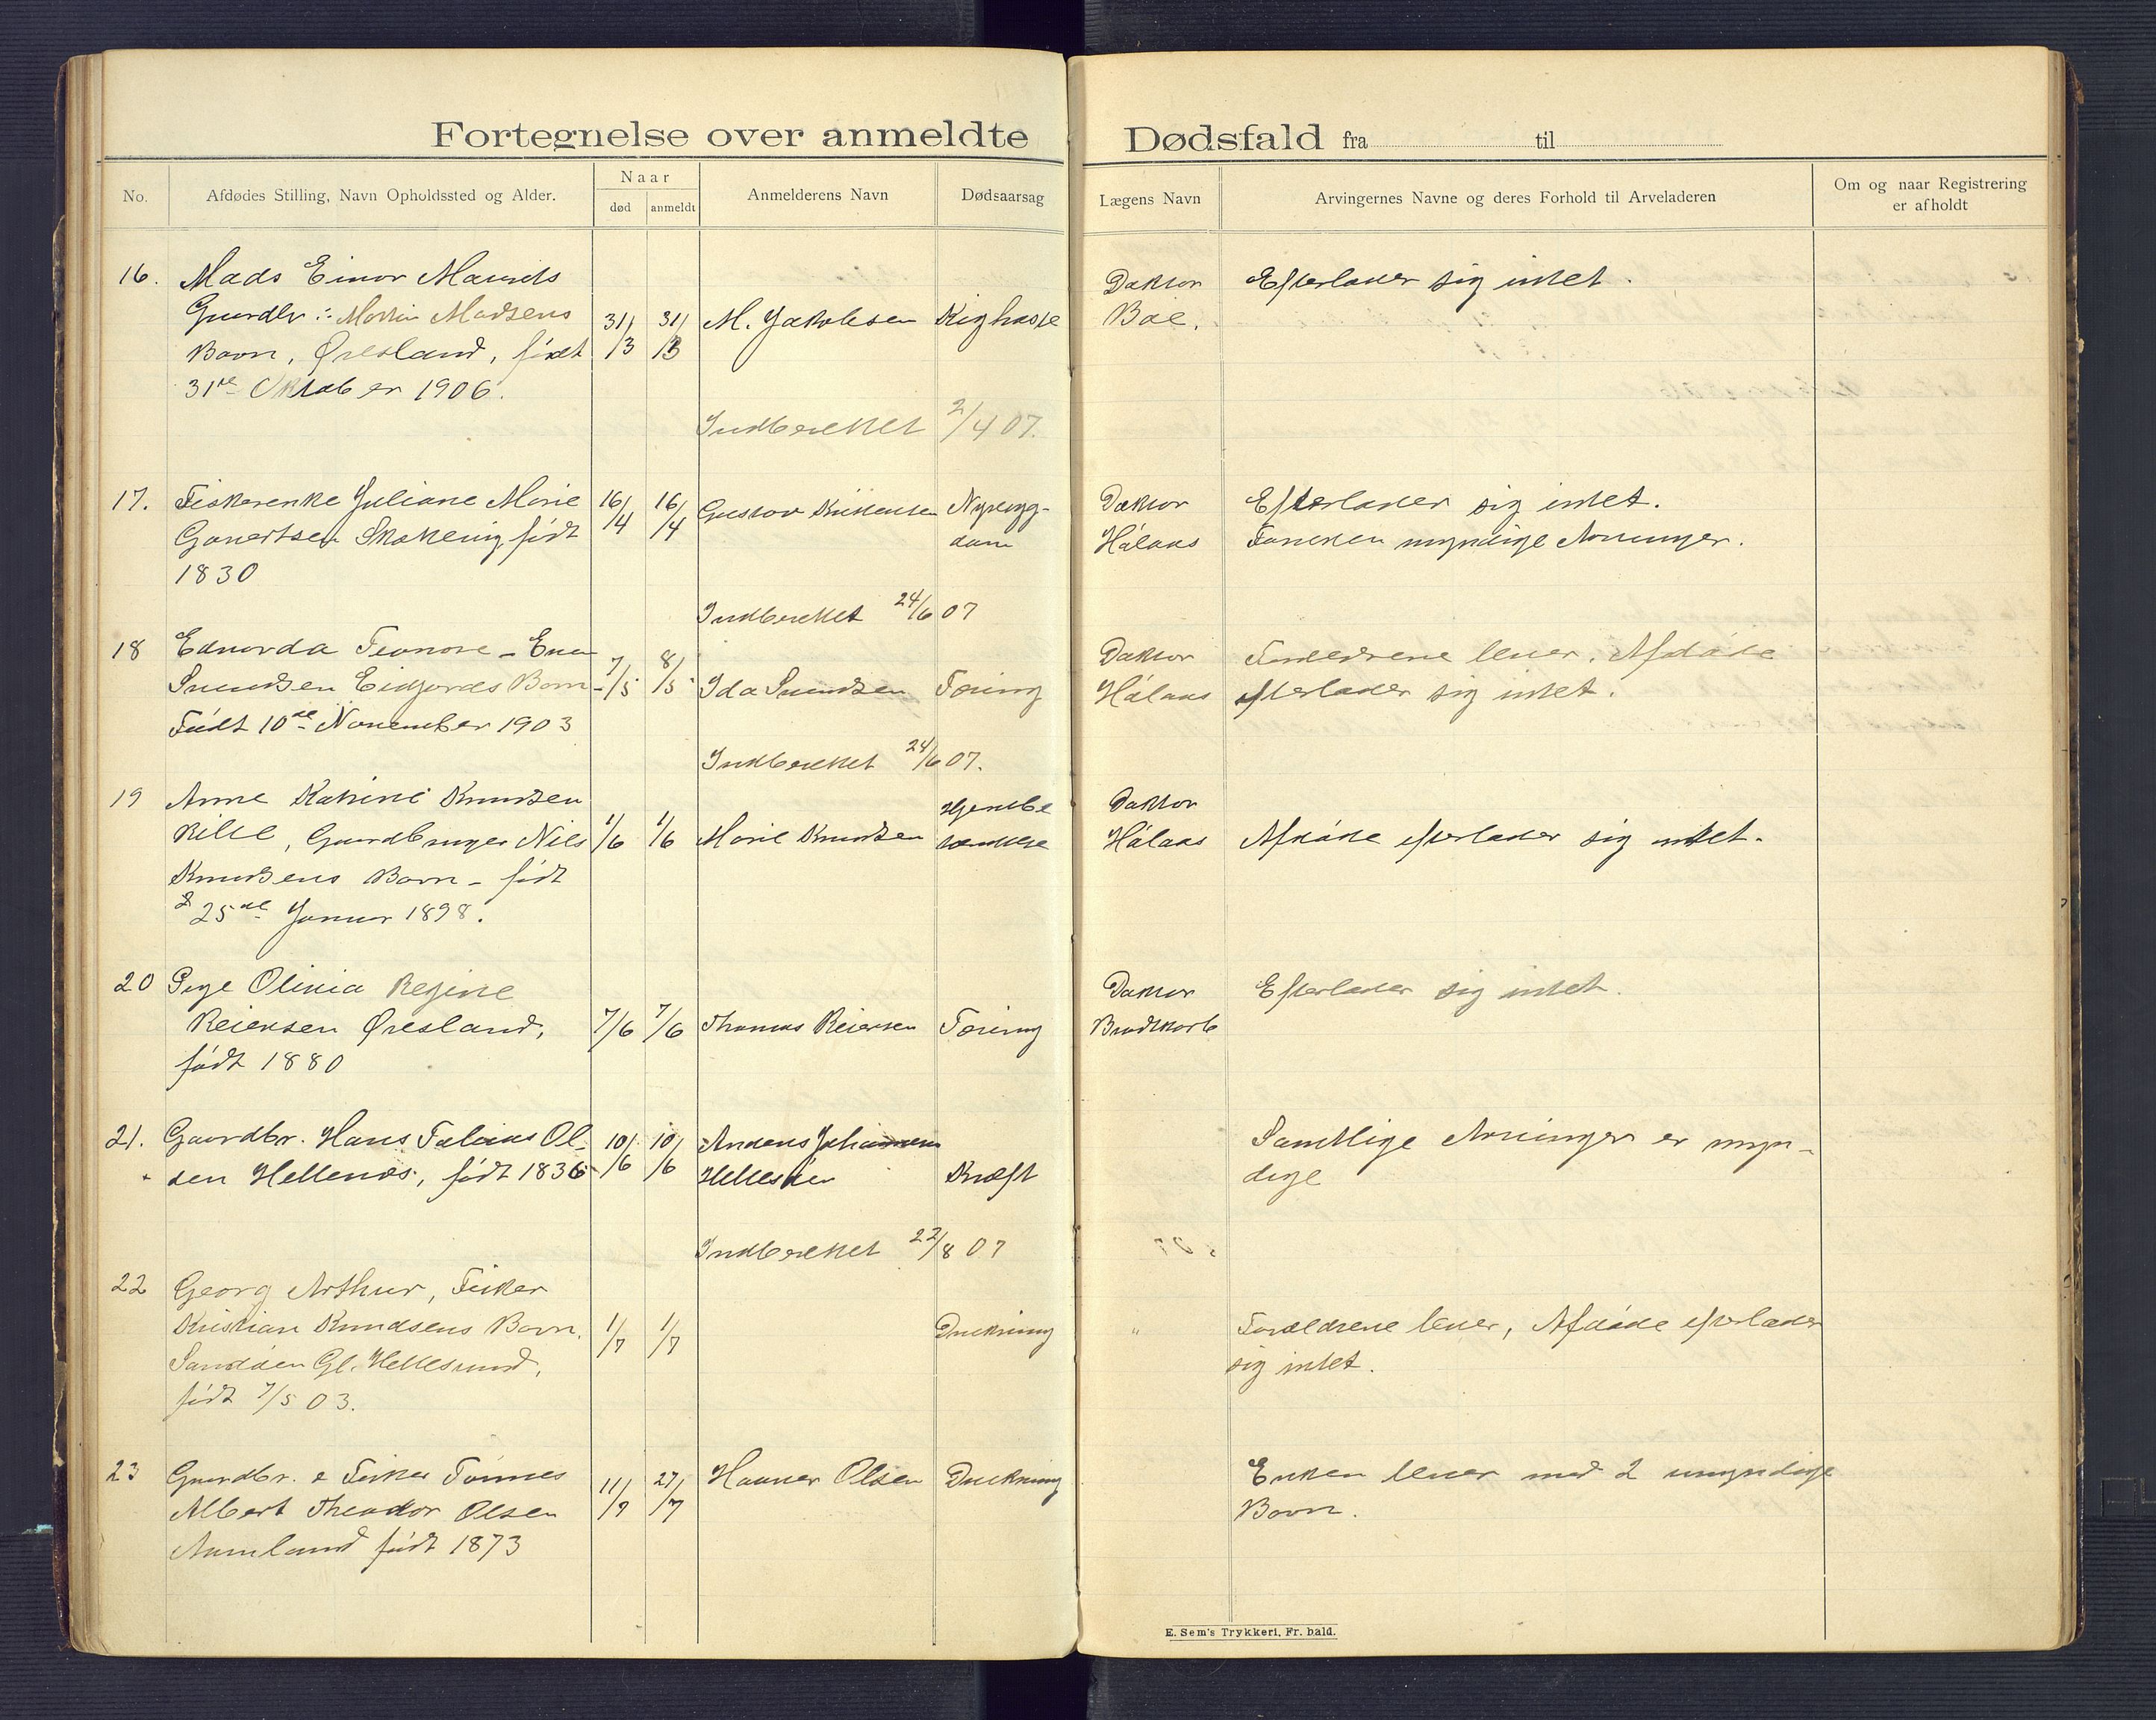 Fortegnelse over anmeldte Dødsfald fra til
No.
Afdødes Stilling, Navn Opholdssted og Alder.
Naar
død
anmeldt
Anmelderens Navn
Dødsaarsag
Lægens Navn
Arvingernes Navne og deres Forhold til Arveladeren
Om og naar Registrering
er afholdt
16. Mads Einar Maurits
Gaardbr :
Madsens
Barn, Øresland, født
31te Oktober 1906.
31/3 31/3 M. Jakobsen Kighoste
Doktor
Boe.
Efterlader sig intet.
Indberettet 2/4 07.
17. Fiskerenke Juliane Marie
født
1830
16/4 16/4 Gustav
Doktor
Hålaas
Efterlader sig intet.
myndige Arvinger.
Indberettet 24/6 07
18
Svendsen Eidjords Barn
Født 10de November 1903
7/5 8/5 Ida Svendsen Tæring
Doktor
Hålaas
Forældrene lever. Afdøde
efterlader sig intet.
Indberettet 24/6 07.
19 Anne Katrine Knudsen
Gaardbruger Nils
Knudsens Barn - født
25de Januar 1898.
1/6 1/6 Marie Knudsen
Doktor
Hålaas
Afdøde efterlader sig intet.
20 Pige Olivia Regine
Reiersen Øresland,
født 1880
7/6 7/6 Thomas Reiersen Tæring
Doktor
Brodtkorb
Efterlader sig intet.
21. Gaardbr. Hans Tobias Ol-
sen Hellenæs, født 1836
10/6 10/6 Anders Johannesen
Kræft
Samtlige Arvinger er myn-
dige
Indberettet 22/8 07
22 Georg Arthur, Fisker
Kristian Knudsens Barn,
Sandøen Gl. Hellesund,
født 7/5 03.
1/7 1/7 Drukning
"
Forældrene lever, Afdøde efterlader
sig intet.
23 Gaardbr. & Fisker Tønnes
Albert Theodor Olsen
Aamland født 1873
11/7 27/7 Olsen Drukning
Enken lever med 2 umyndige
Barn.
E. Sem's Trykkeri, Fr. hald.